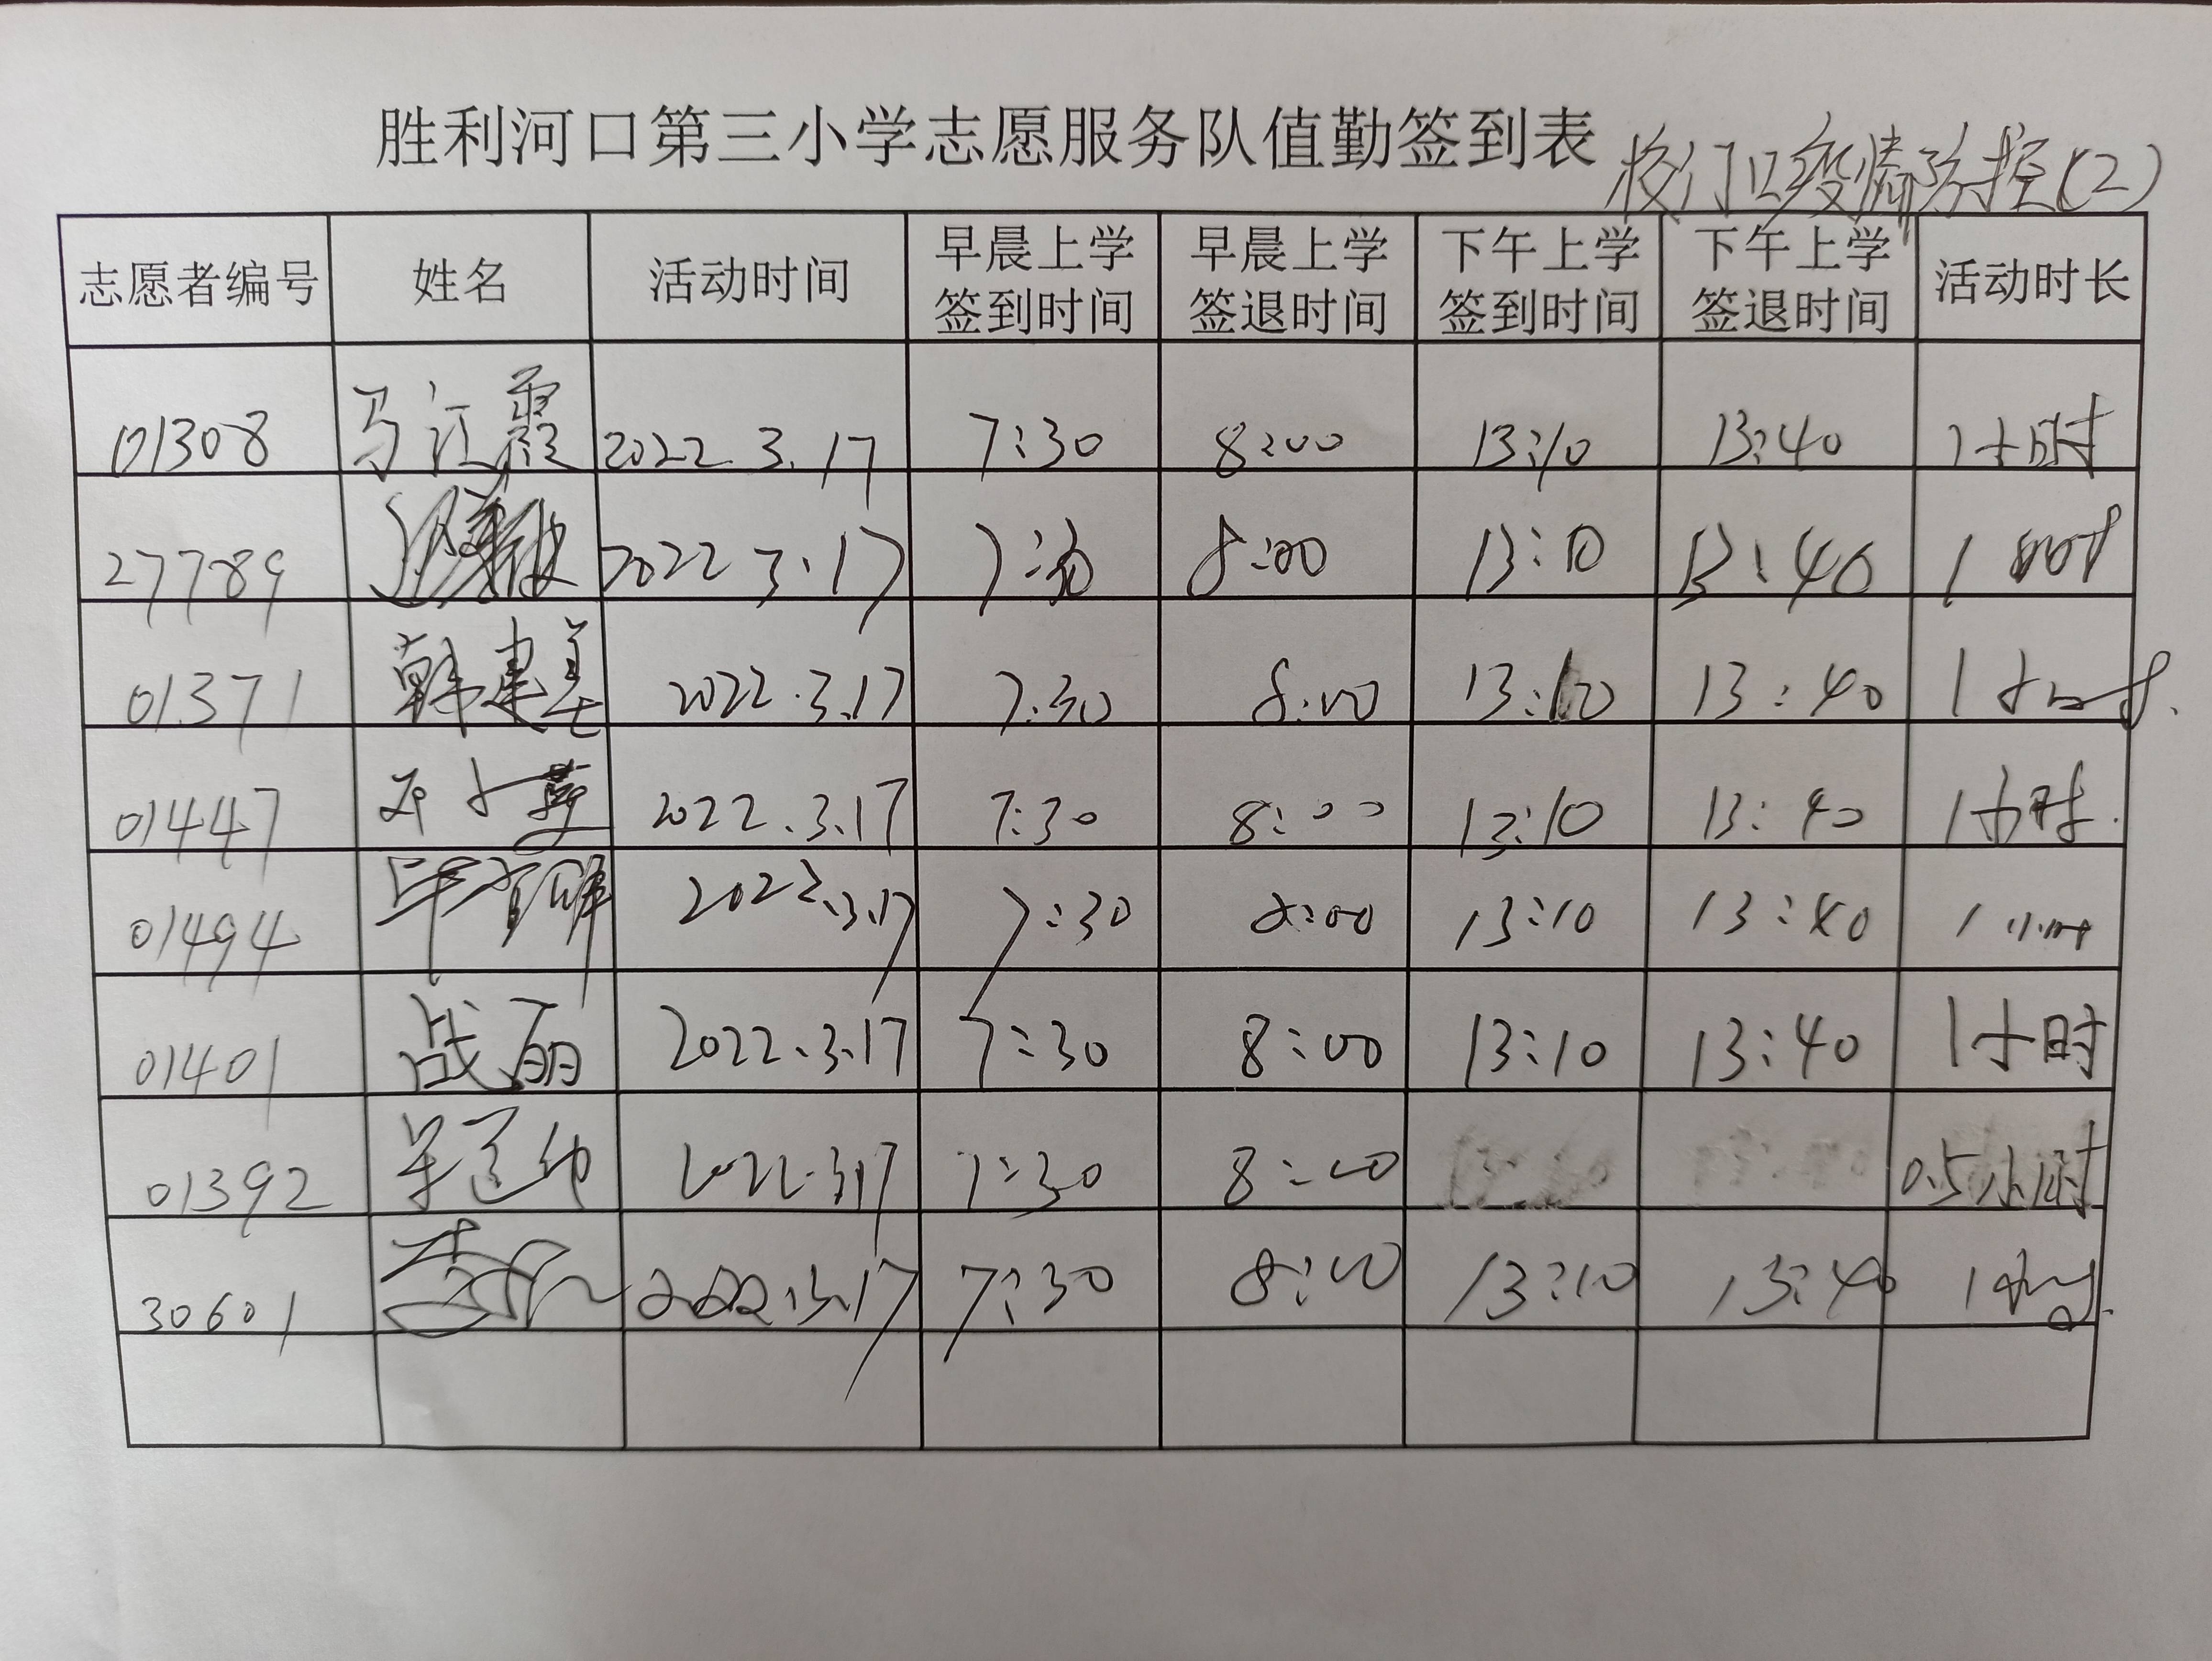 胜利河口第三小学志愿服务队值勤签到表 校门口疫情防控(2)
志愿者编号 姓名 活动时间 早晨上学签到时间 早晨上学签退时间 下午上学签到时间 下午上学签退时间 活动时长
01308 马江霞 2022.3.17 7:30 8:00 13:10 13:40 1小时
27789 2022 3.17 7:30 8:00 13:10 13:40 1小时
01371 韩建美 2022.3.17 7:30 8:00 13:10 13:40 1小时.
01447 2022.3.17 7:30 8:00 13:10 13:40 1小时.
01494 2022.3.17 7:30 8:00 13:10 13:40 1小时
01401 战丽 2022.3.17 7:30 8:00 13:10 13:40 1小时
01392 2022.3.17 7:30 8:00 0.5小时
30601 2022.3.17 7:30 8:00 13:10 13:40 1小时.